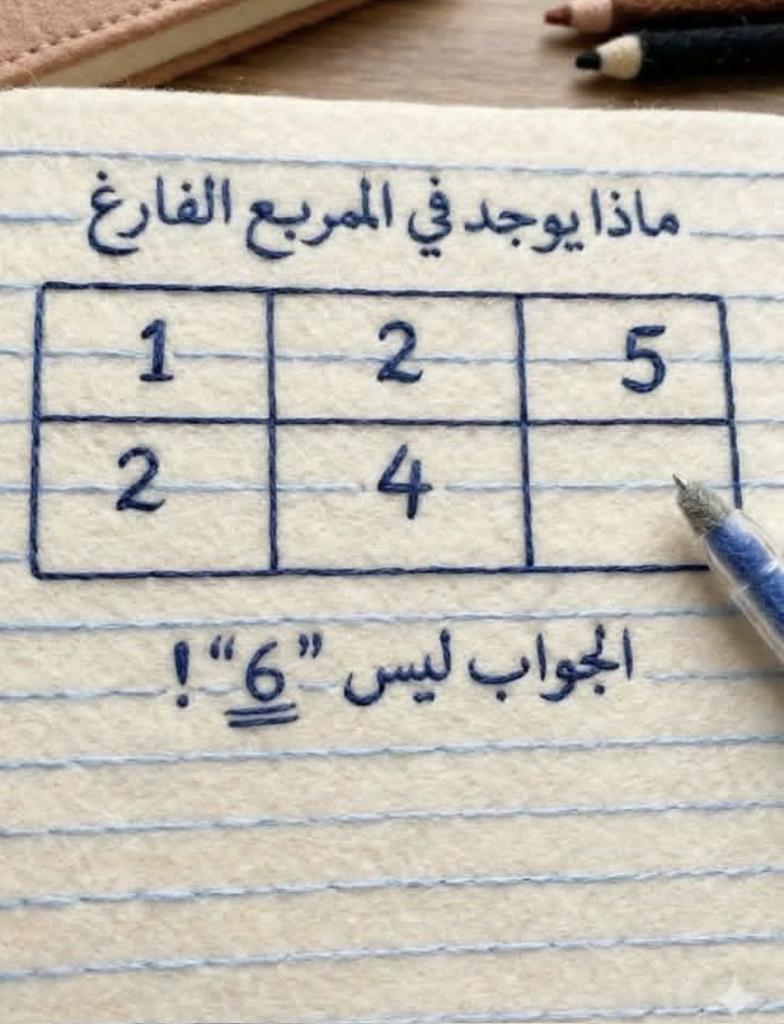 ماذا يوجد في المربع الفارغ
1 2 5
2 4
الجواب ليس "6"!